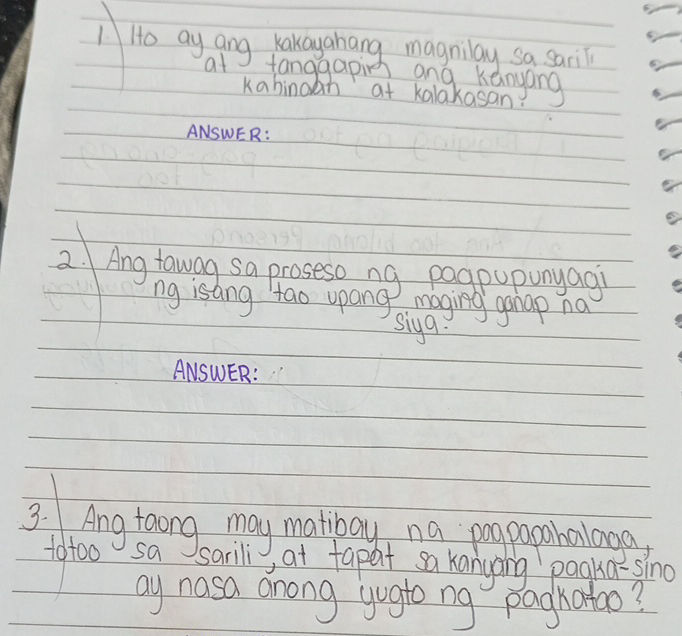 1. Ito ay ang kakayahang magnilay sa sarili
at tanggapin ang kanyang
kahinaan at kalakasan?
ANSWER:
2. Ang tawag sa proseso ng pagpupunyagi
ng isang tao upang maging ganap na
siya.
ANSWER:
3. Ang taong may matibay na pagpapahalaga,
totoo sa sarili, at tapat sa kanyang pagka-sino
ay nasa anong yugto ng pagkatao?